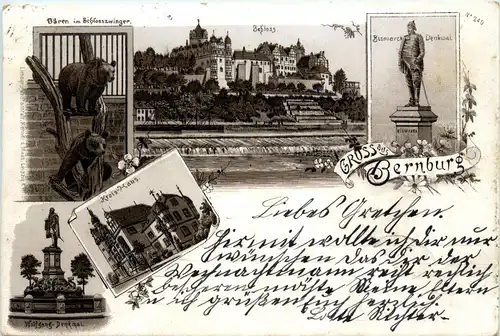 Bären im Schlosszwinger.
Schloss.
Bismarck Denkmal
No 249
GRUSS aus
Bernburg
Kreis-Haus
Wolfgang-Denkmal
Liebes Gretchen.
Hirmit wollte ich dir nur
wünschen das dir der
Weihnachtmann recht reichlich
bescheren möchte Meine Eltern
u ich grüßen
Richter.